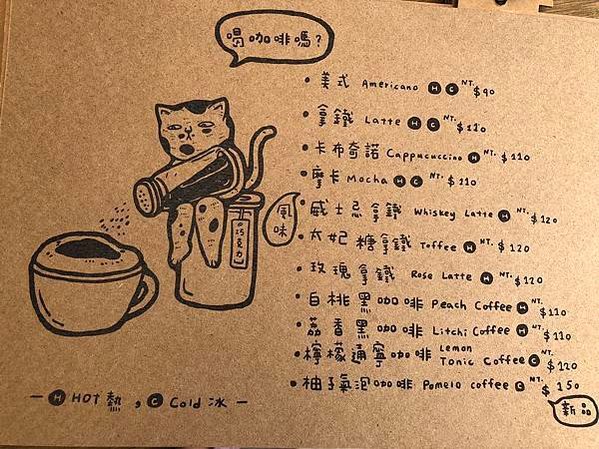 喝咖啡嗎?
美式 Americano H C NT.$90
拿鐵 Latte H C NT.$110
卡布奇諾 Cappucuccino H NT.$110
摩卡 Mocha H C NT.$110
風味
威士忌拿鐵 Whiskey Latte H NT.$120
太妃糖拿鐵 Toffee H NT.$120
玫瑰拿鐵 Rose Latte H NT.$120
白桃黑咖啡 Peach Coffee H NT.$110
荔香黑咖啡 Litchi Coffee H NT.$110
檸檬通寧咖啡 Lemon Tonic Coffee C NT.$120
柚子氣泡咖啡 Pomelo coffee C NT.$150
新品
巧克力
— H HOT 熱 , C Cold 冰 —